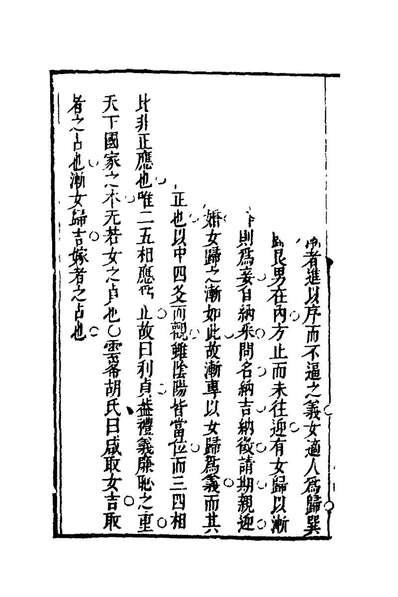 漸者進以序而不逼之義女適人爲歸巽
艮男在內方止而未往迎有女歸以漸
則爲妾自納采問名納吉納徵請期親迎
婚女歸之漸如此故漸專以女歸爲義而其
正也以中四爻而觀雖陰陽皆當位而三四相
比非正應也唯二五相應 止故曰利貞益禮義廉恥之重
天下國家之本无若女之貞也雲峯胡氏曰咸取女吉取
者之占也漸女歸吉嫁者之占也